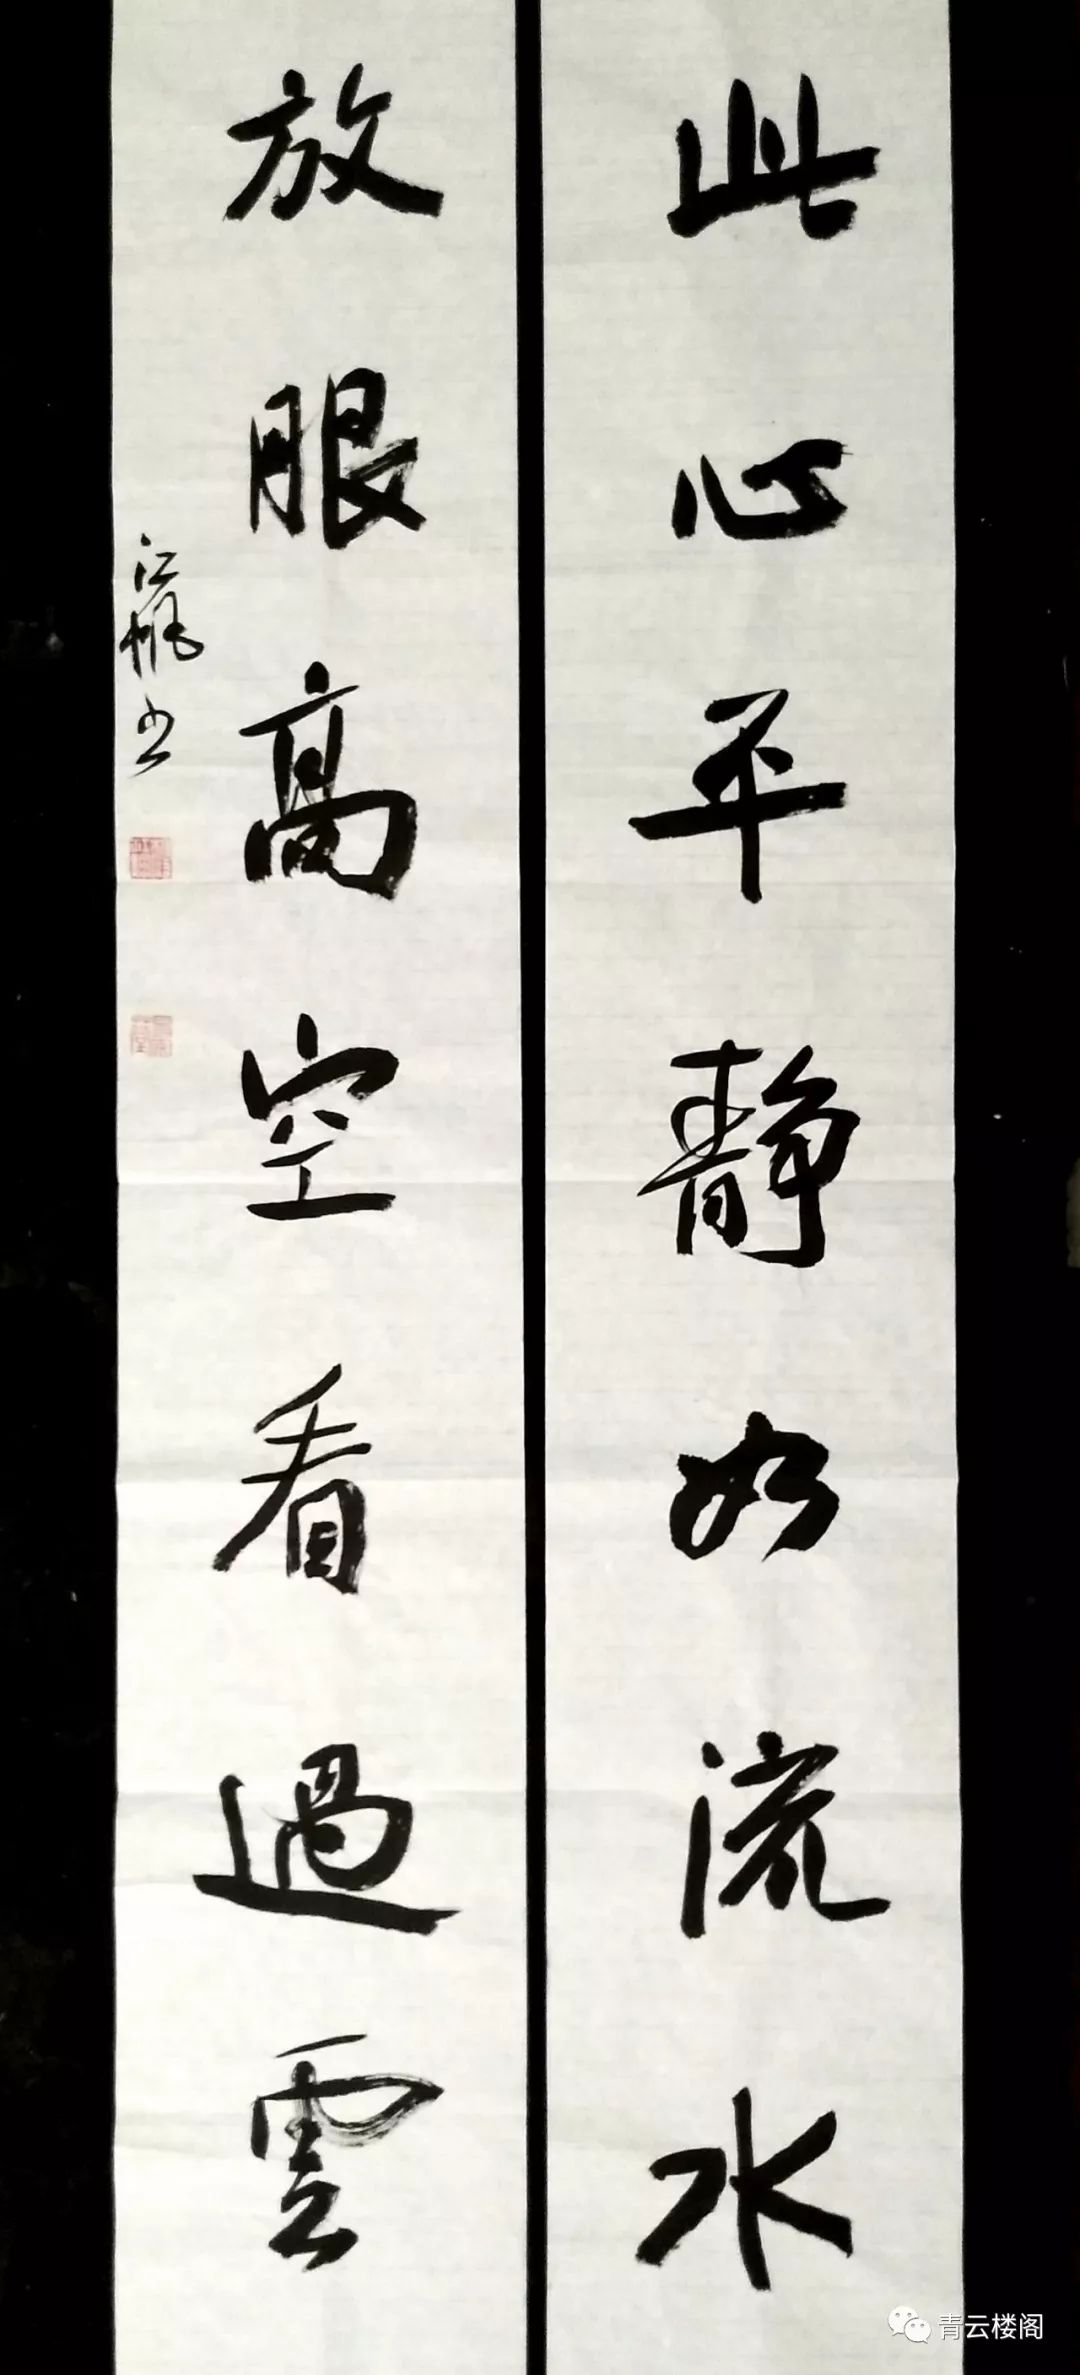 此心平静如流水
放眼高空看過雲
江帆书
青云楼阁